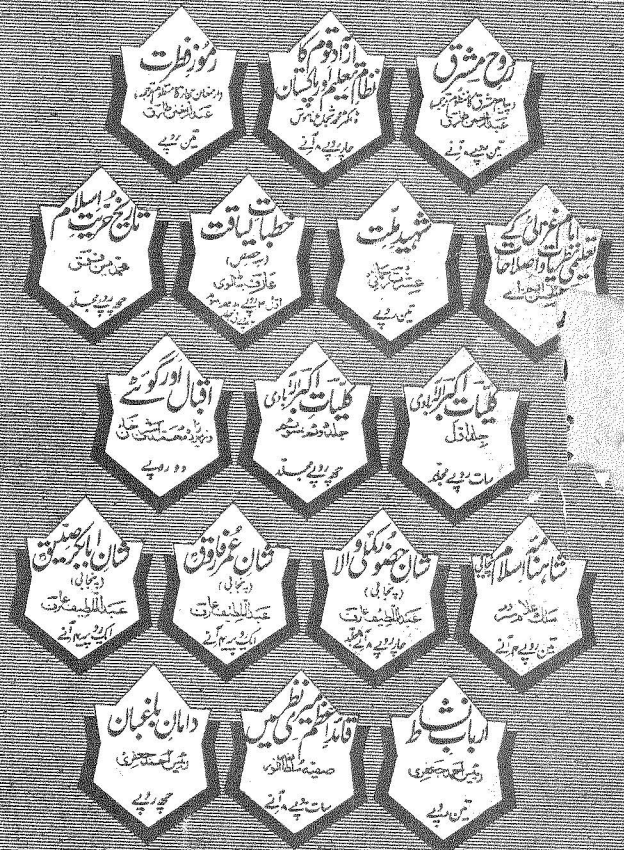 روح مشرق
(پیام مشرق کا منظوم ترجمہ)
عبدالرحمٰن طارق
تین روپے ۸ آنے
آزاد قوم کا
نظام تعلیم اور پاکستان
ڈاکٹر محمد شجاع ناموس
چار روپے ۸ آنے
رموز فطرت
(ارمغان حجاز کا منظوم ترجمہ)
عبدالرحمٰن طارق
تین روپے
امام غزالی کے
تعلیمی نظریات و اصلاحات
شہید ملت
تین روپے
خطبات لیاقت
عارف بٹالوی
تاریخ حریت اسلام
چھ روپے مجلد
کلیات اکبر الٰہ آبادی
جلد اول
سات روپے مجلد
کلیات اکبر الٰہ آبادی
جلد دوئم سوئم
چھ روپے مجلد
اقبال اور گوئٹے
دو روپے
شاہنامہ اسلام پنجابی
تین روپے ۴ آنے
شان حضور کملی والا
(پنجابی)
عبداللطیف عارف
چار روپے ۸ آنے مجلد
شان عمر فاروق
(پنجابی)
عبداللطیف عارف
ایک روپیہ ۴ آنے
شان ابابکر صدیق
(پنجابی)
عبداللطیف عارف
ایک روپیہ ۴ آنے
ارباب نشاط
رئیس احمد جعفری
تین روپے
قائد اعظم میری نظر میں
سات روپے ۸ آنے
دامان باغبان
رئیس احمد جعفری
چھ روپے